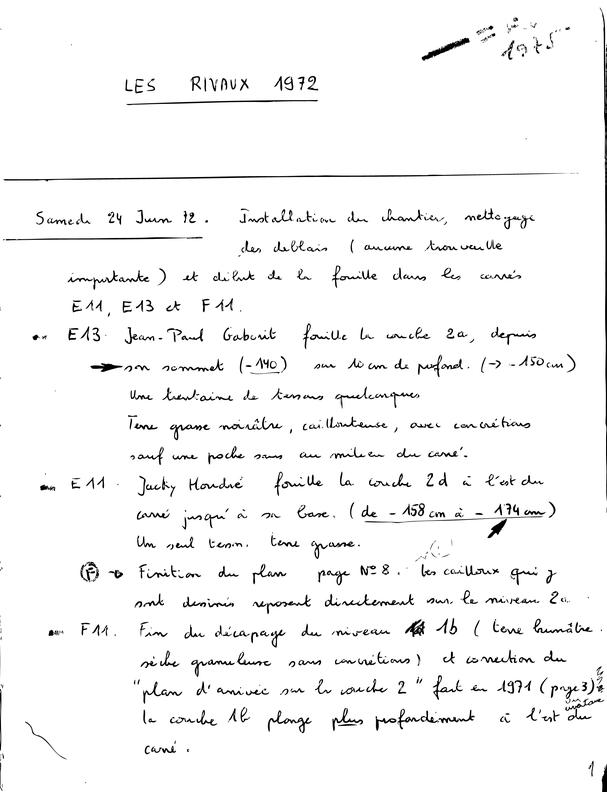 1975
LES RIVAUX 1972
Samedi 24 Juin 72. Installation du chantier, nettoyage
des deblais (aucune trouvaille
importante) et début de la fouille dans les carrés
E11, E13 et F11.
E13. Jean-Paul Gaborit fouille la couche 2a, depuis
son sommet (-140) sur 10 cm de profond. (→ -150 cm)
Une trentaine de tessons quelconques
Terre grasse noirâtre, caillouteuse, avec concrétions
sauf une poche sans au milieu du carré.
E11. Jacky Houdré fouille la couche 2d à l'est du
carré jusqu'à sa base. (de -158 cm à -174 cm)
Un seul tesson. terre grasse.
(F) → Finition du plan page N° 8. les cailloux qui y
sont dessinés reposent directement sur le niveau 2a.
F11. Fin du décapage du niveau 1b (terre humâtre
sèche granuleuse sans concrétions) et correction du
"plan d'arrivée sur la couche 2" fait en 1971 (page 3)
la couche 1b plonge plus profondément à l'est du
carré.
1